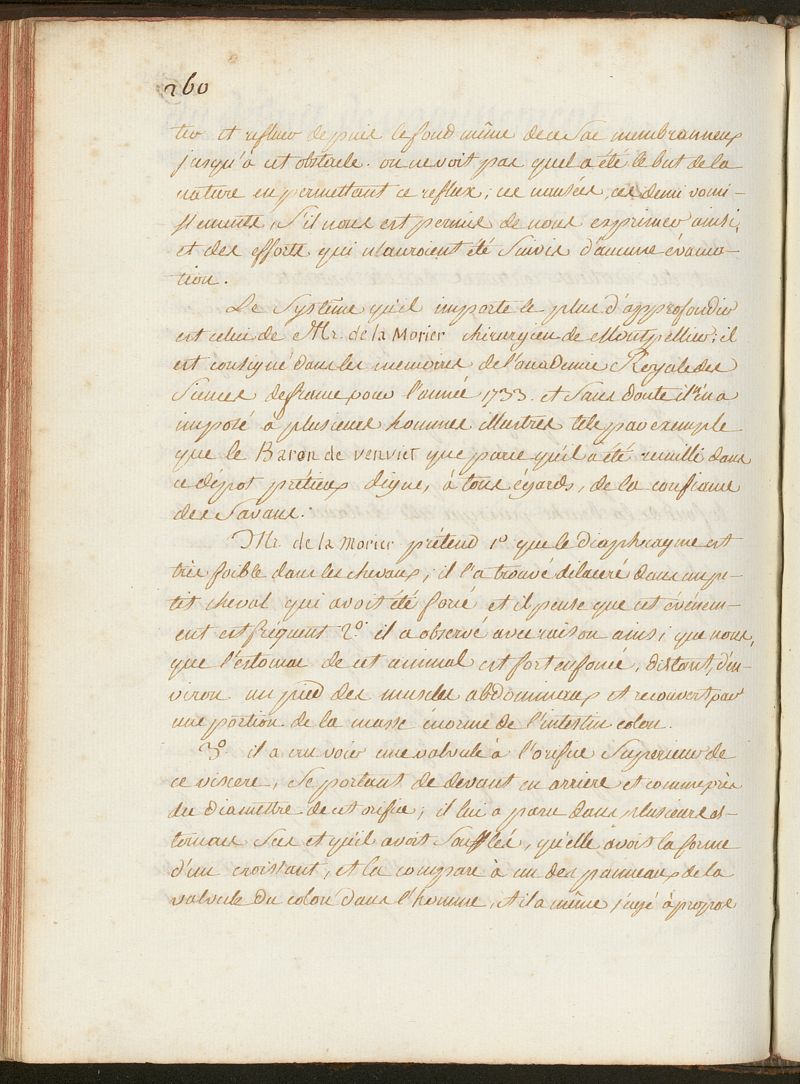 260
ter et refluer depuis le fond même de ce Sac membranneux
jusqu'à cet obstacle. on ne voit pas quel a été le but de la
nature en permettant ce reflux, ces nausées, ces demi vomi-
ssements, S'il nous est permis de nous exprimer ainsi,
et des efforts qui n'auroient été Suivis d'aucune évacua-
tion.
Le Système qu'il importe le plus d'approfondir
est celui de Mr. de la Morier chirurgien de Montpellier; il
est consigné dans les memoires de l'academie Royale des
Siences de france pour l'année 1733. et Sans doute il en a
imposé à plusieurs hommes illustres tels par exemple
que le Baron de venviet que parce qu'il a été recuilli dans
ce dépot pretieux digne, à tous égards, de la confiance
des Savans.
Mr. de la Morier prétend 1º que le diaphragme est
très foible dans les chevaux; il l'a trouvé dilaceré dans un pe-
tit cheval qui avoit été forcé et il pense que cet événem-
ent est fréquent 2º. il a observé avec raison ainsi que nous,
que l'estomac de cet animal est fort enfoncé, distant, d'en-
viron un pied des muscles abdominaux et recouvert par
une portion de la masse énorme de l'intestin colon.
3º. il a cru voir une valvule à l'orifice Superieur de
ce viscere, Se portant de devant en arriere et comme près
du diamettre de cet orifice; il lui a paru dans plusieurs es-
tomacs Secs et qu'il avoit Soufflés, qu'elle avoit la forme
d'un croissant, et la compare à un des panneaux de la
valvule du colon dans l'homme, et il a même jugé à propos